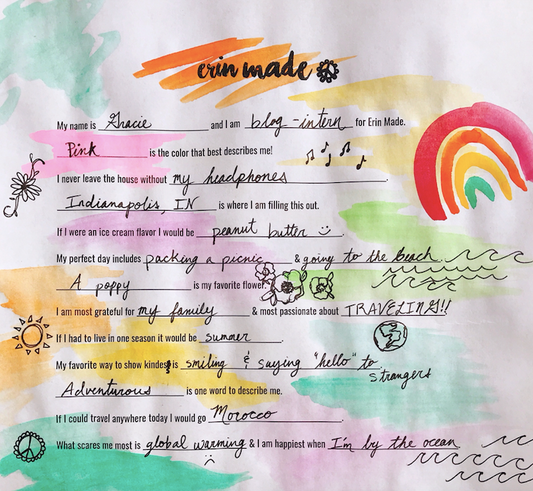 erin made
My name is Gracie and I am blog-intern for Erin Made.
Pink is the color that best describes me!
I never leave the house without my headphones.
Indianapolis, IN is where I am filling this out.
If I were an ice cream flavor I would be peanut butter
My perfect day includes packing a picnic & going to the beach.
A poppy is my favorite flower.
I am most grateful for my family & most passionate about TRAVELING!!
If I had to live in one season it would be summer.
My favorite way to show kindess is smiling & saying "hello" to
strangers
Adventurous is one word to describe me.
If I could travel anywhere today I would go Morocco.
What scares me most is global warming & I am happiest when I'm by the ocean